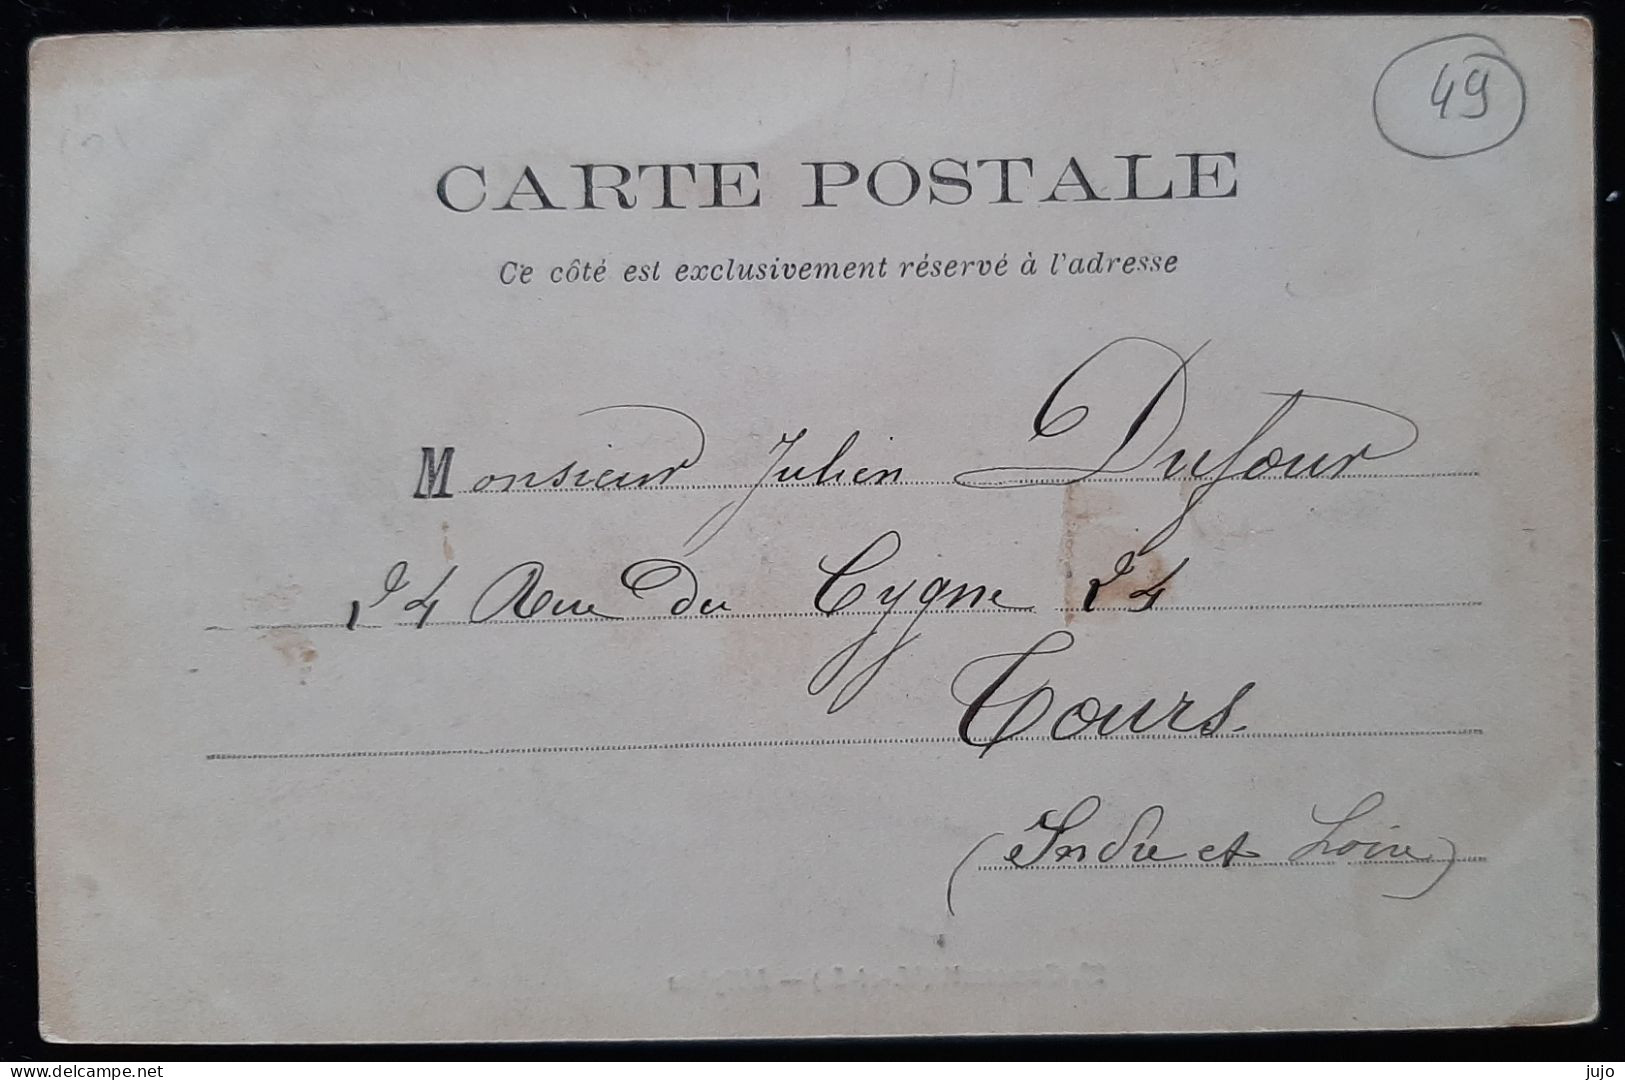 49
CARTE POSTALE
Ce côté est exclusivement réservé à l'adresse
Monsieur Julien Dufour
24 Rue du Cygne 24
Tours.
(Indre et Loire)
www.delcampe.net
jujo